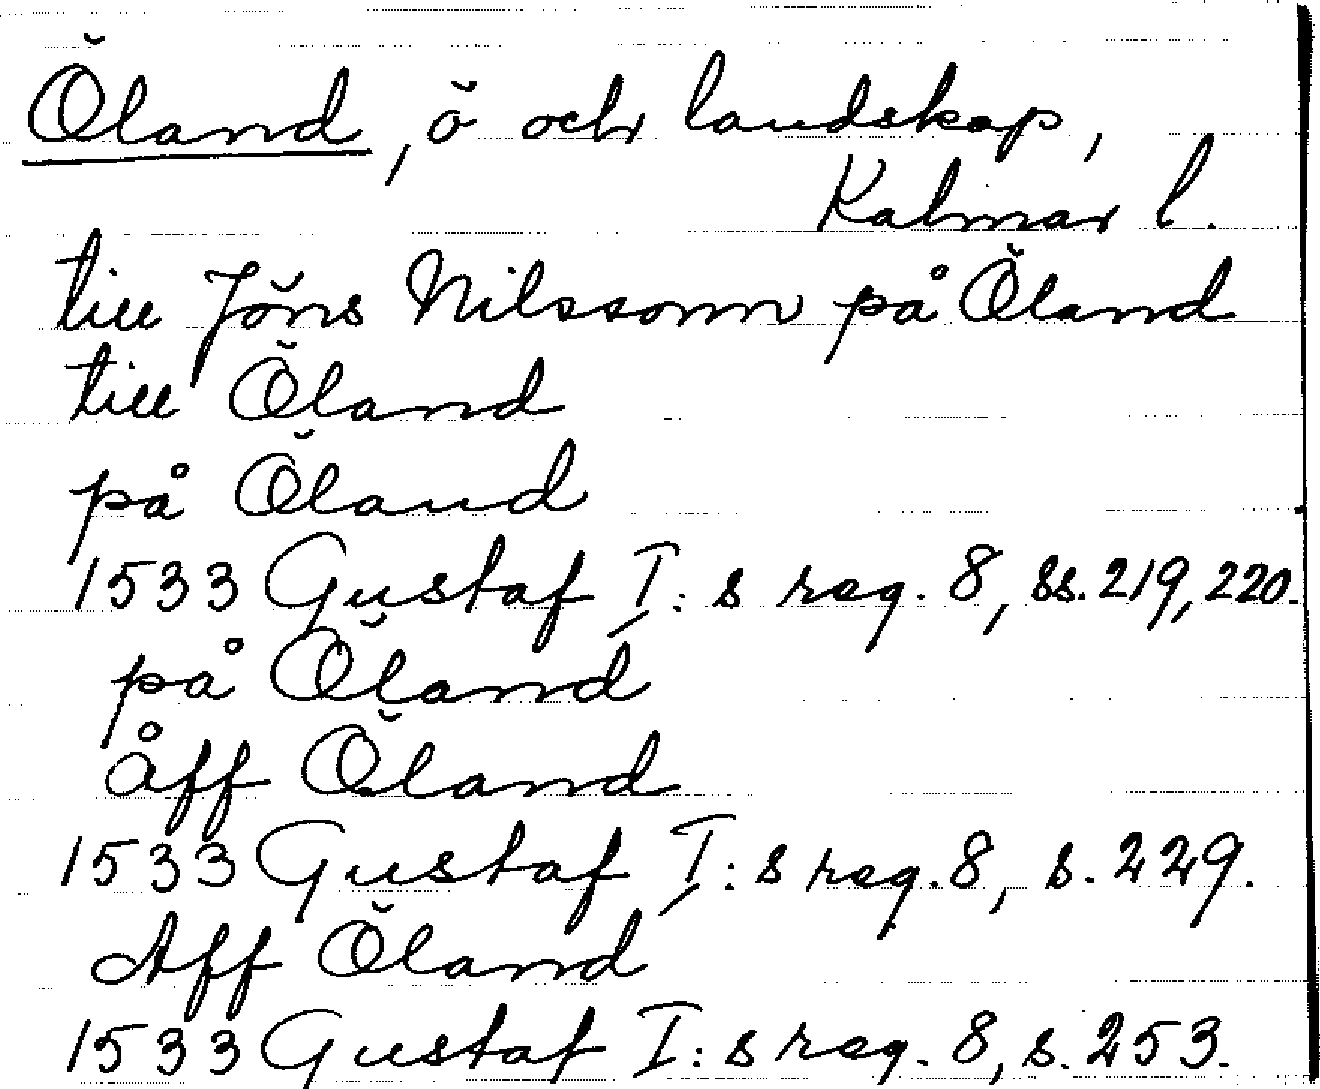 Öland, ö och landskap,
Kalmar l.
till Jöns Nilssonn på Öland
till Öland
på Öland
1533 Gustaf I:s reg. 8, ss. 219, 220.
på Öland
åff Öland
1533 Gustaf I:s reg. 8, s. 229.
Aff Öland
1533 Gustaf I:s reg. 8, s. 253.